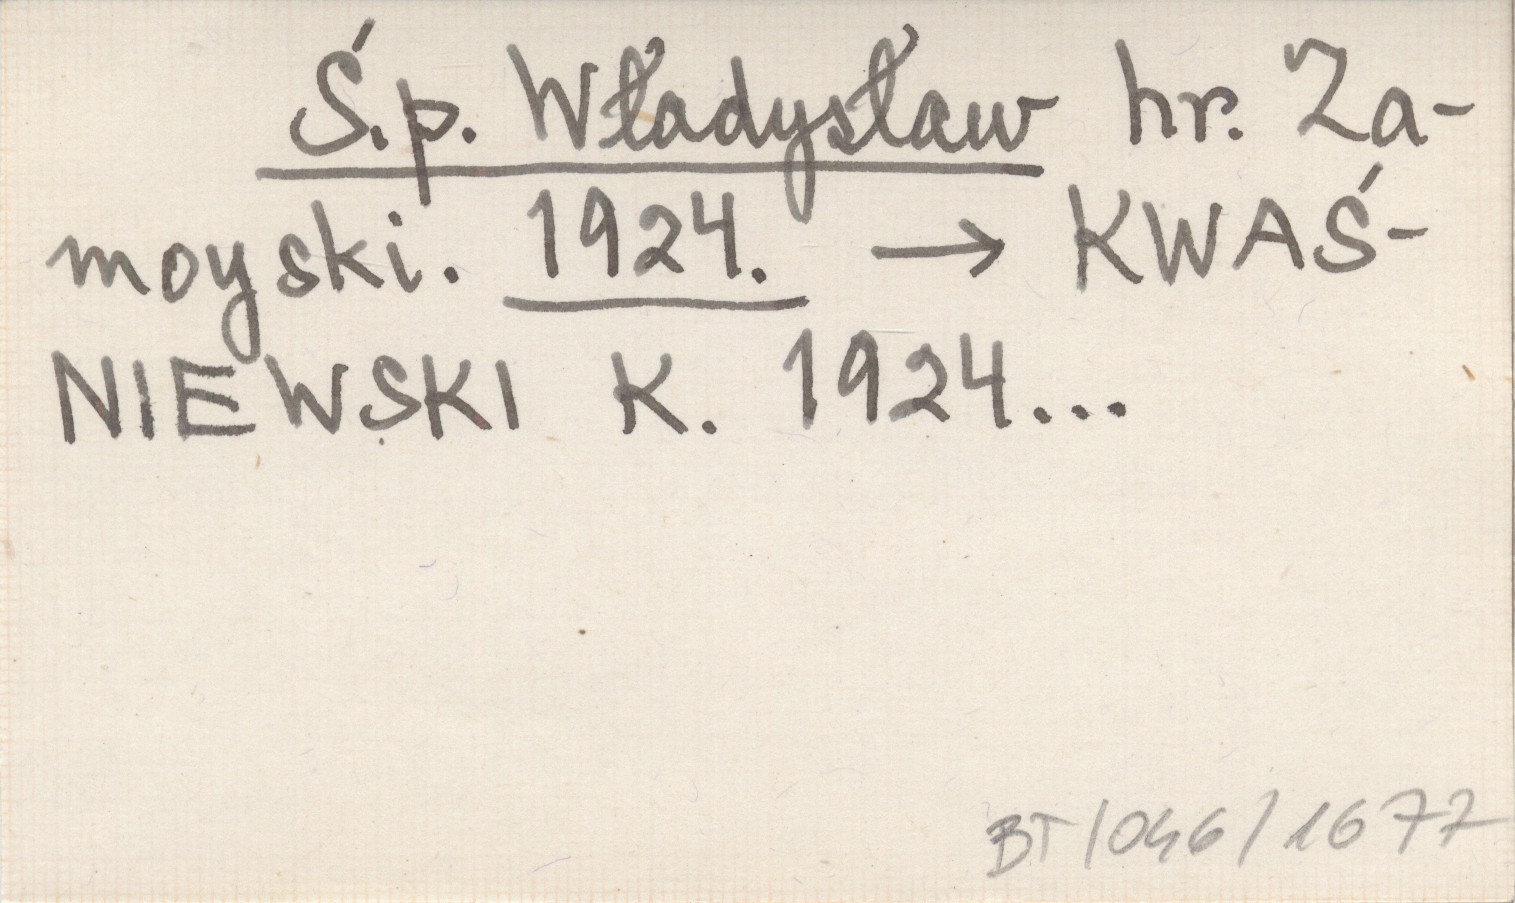 Ś.p. Władysław hr. Za-
moyski. 1924. → KWAŚ-
NIEWSKI K. 1924...
BT/046/1677